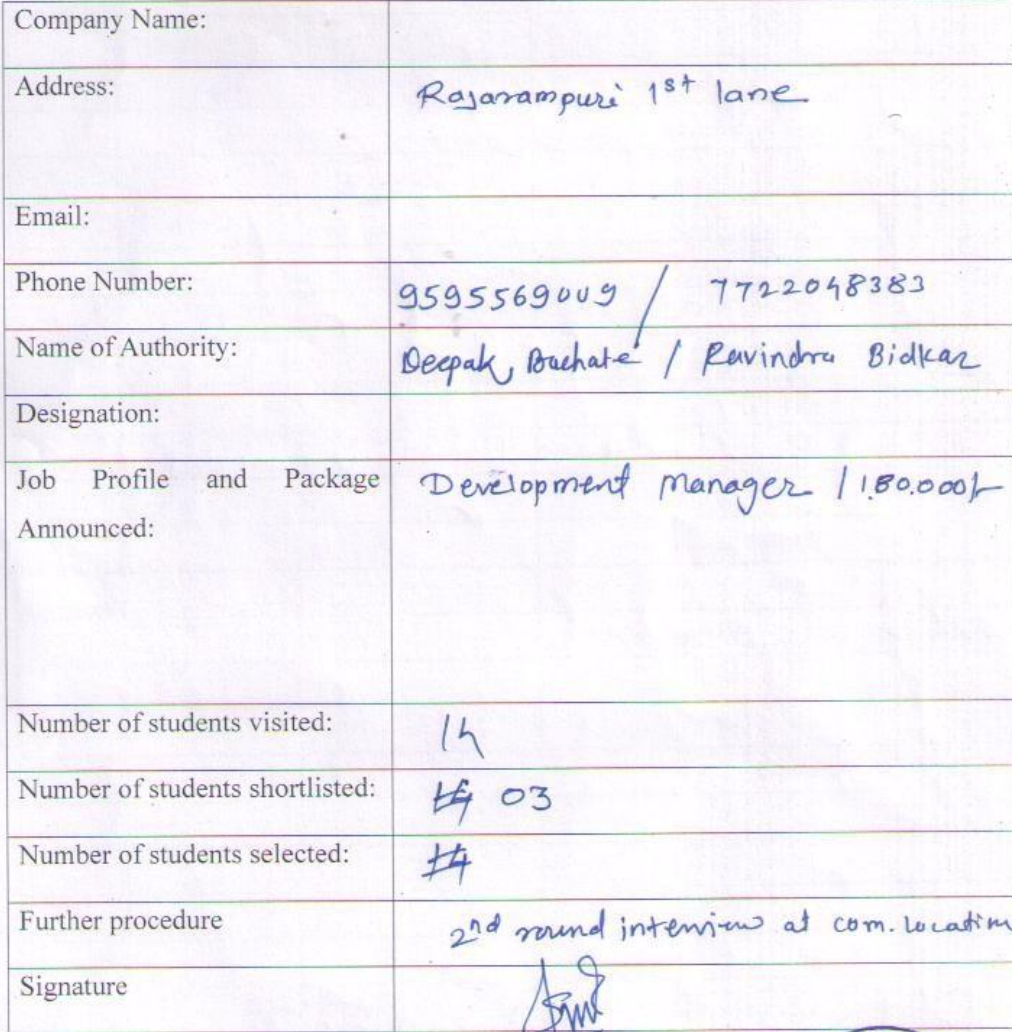 Company Name:
Address: Rajarampuri 1st lane
Email:
Phone Number: 9595569009 / 7722048383
Name of Authority: Deepak Bachate / Ravindra Bidkar
Designation:
Job Profile and Package Development Manager / 1.80.000/-
Announced:
Number of students visited: 14
Number of students shortlisted: 03
Number of students selected:
Further procedure 2nd round interview at com. location
Signature